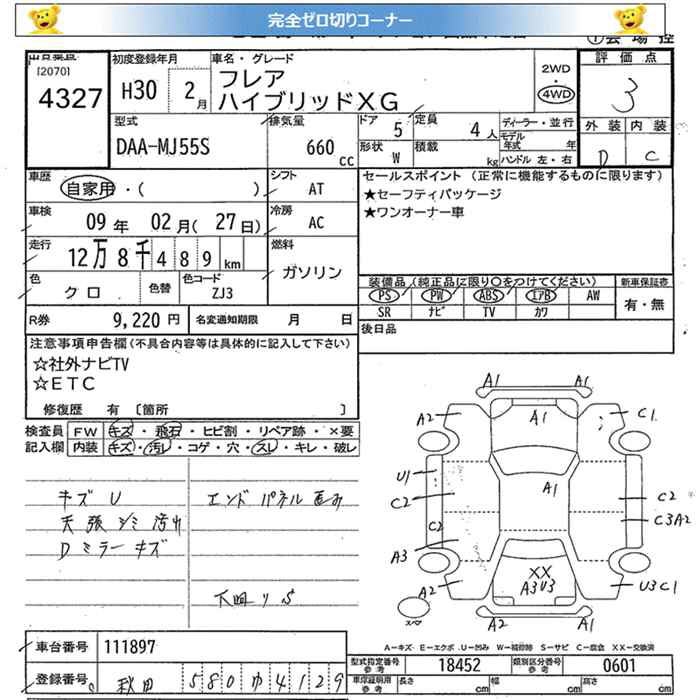 完全ゼロ切りコーナー
出品番号
[2070]
4327
初度登録年月
H30 2月
車名・グレード
フレア
ハイブリッドXG
2WD
4WD
評価点
3
外装 内装
D C
型式
DAA-MJ55S
排気量
660 CC
ドア 5
定員 4人
形状 W
積載 kg
ディーラー・並行
モデル年式 年
ハンドル 左・右
車歴
自家用・( )
シフト AT
車検 09年 02月(27日)
冷房 AC
走行 12万8千489km
燃料 ガソリン
色 クロ
色替
色コード ZJ3
R券 9,220円
名変通知期限 月 日
セールスポイント (正常に機能するものに限ります)
★セーフティパッケージ
★ワンオーナー車
装備品 (純正品に限り○をつけてください)
PS PW ABS エアB AW
SR ナビ TV カワ
新車保証書
有・無
後日品
注意事項申告欄(不具合内容等は具体的に記入して下さい)
☆社外ナビTV
☆ETC
修復歴 有 [箇所 ]
検査員 FW キズ・飛石・ヒビ割・リペア跡・×要
記入欄 内装 キズ・汚レ・コゲ・穴・スレ・キレ・破レ
キズ U
天張シミ汚レ
Dミラーキズ
エンドパネル歪み
下回りS
A1 A1
A2 A1 C1
U1 A1
C2 C2
C2 C3A2
A3
XX
A3U3
A2 U3C1
A2 A2
スペ
A-キズ E-エクボ U-凹み W-補修跡 S-サビ C-腐食 XX-交換済
車台番号 111897
登録番号 秋田 580 ゆ 4129
型式指定番号 参考 18452
類別区分番号 参考 0601
車庫証明用 参考 長さ cm 幅 cm 高さ cm